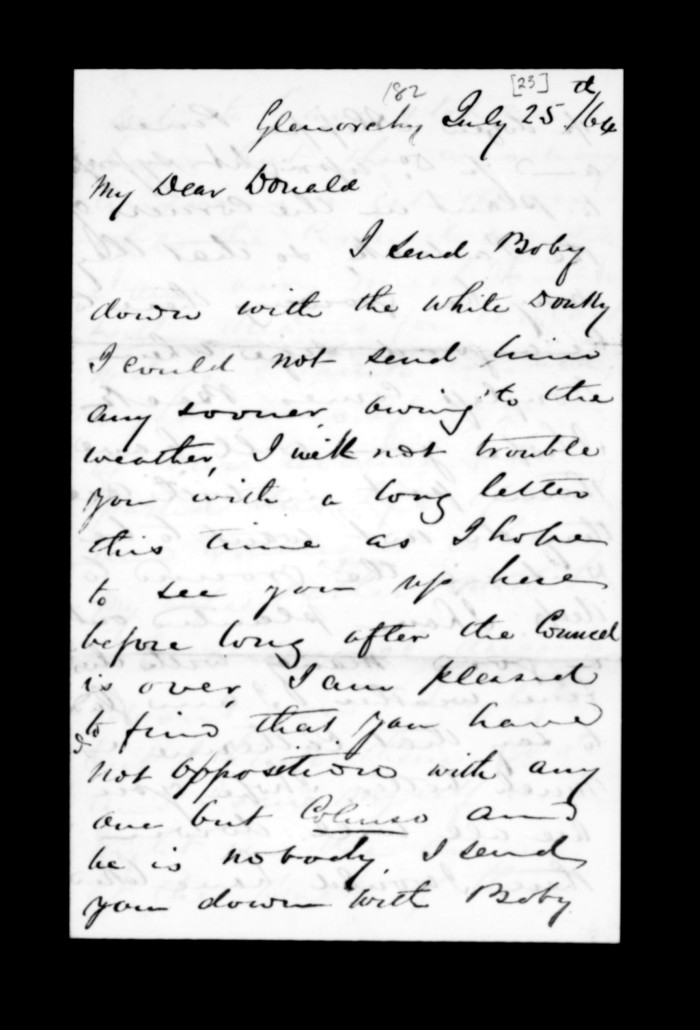 182 [23]
Glenorchy July 25th /64
My Dear Donald
I send Boby
down with the white Donky
I could not send him
any sooner, owing to the
weather, I will not trouble
you with a long letter
this time as I hope
to see you up here
before long after the Council
is over, I am pleased
to find that you have
not opposition with any
one but Colinso and
he is nobody, I send
you down with Boby